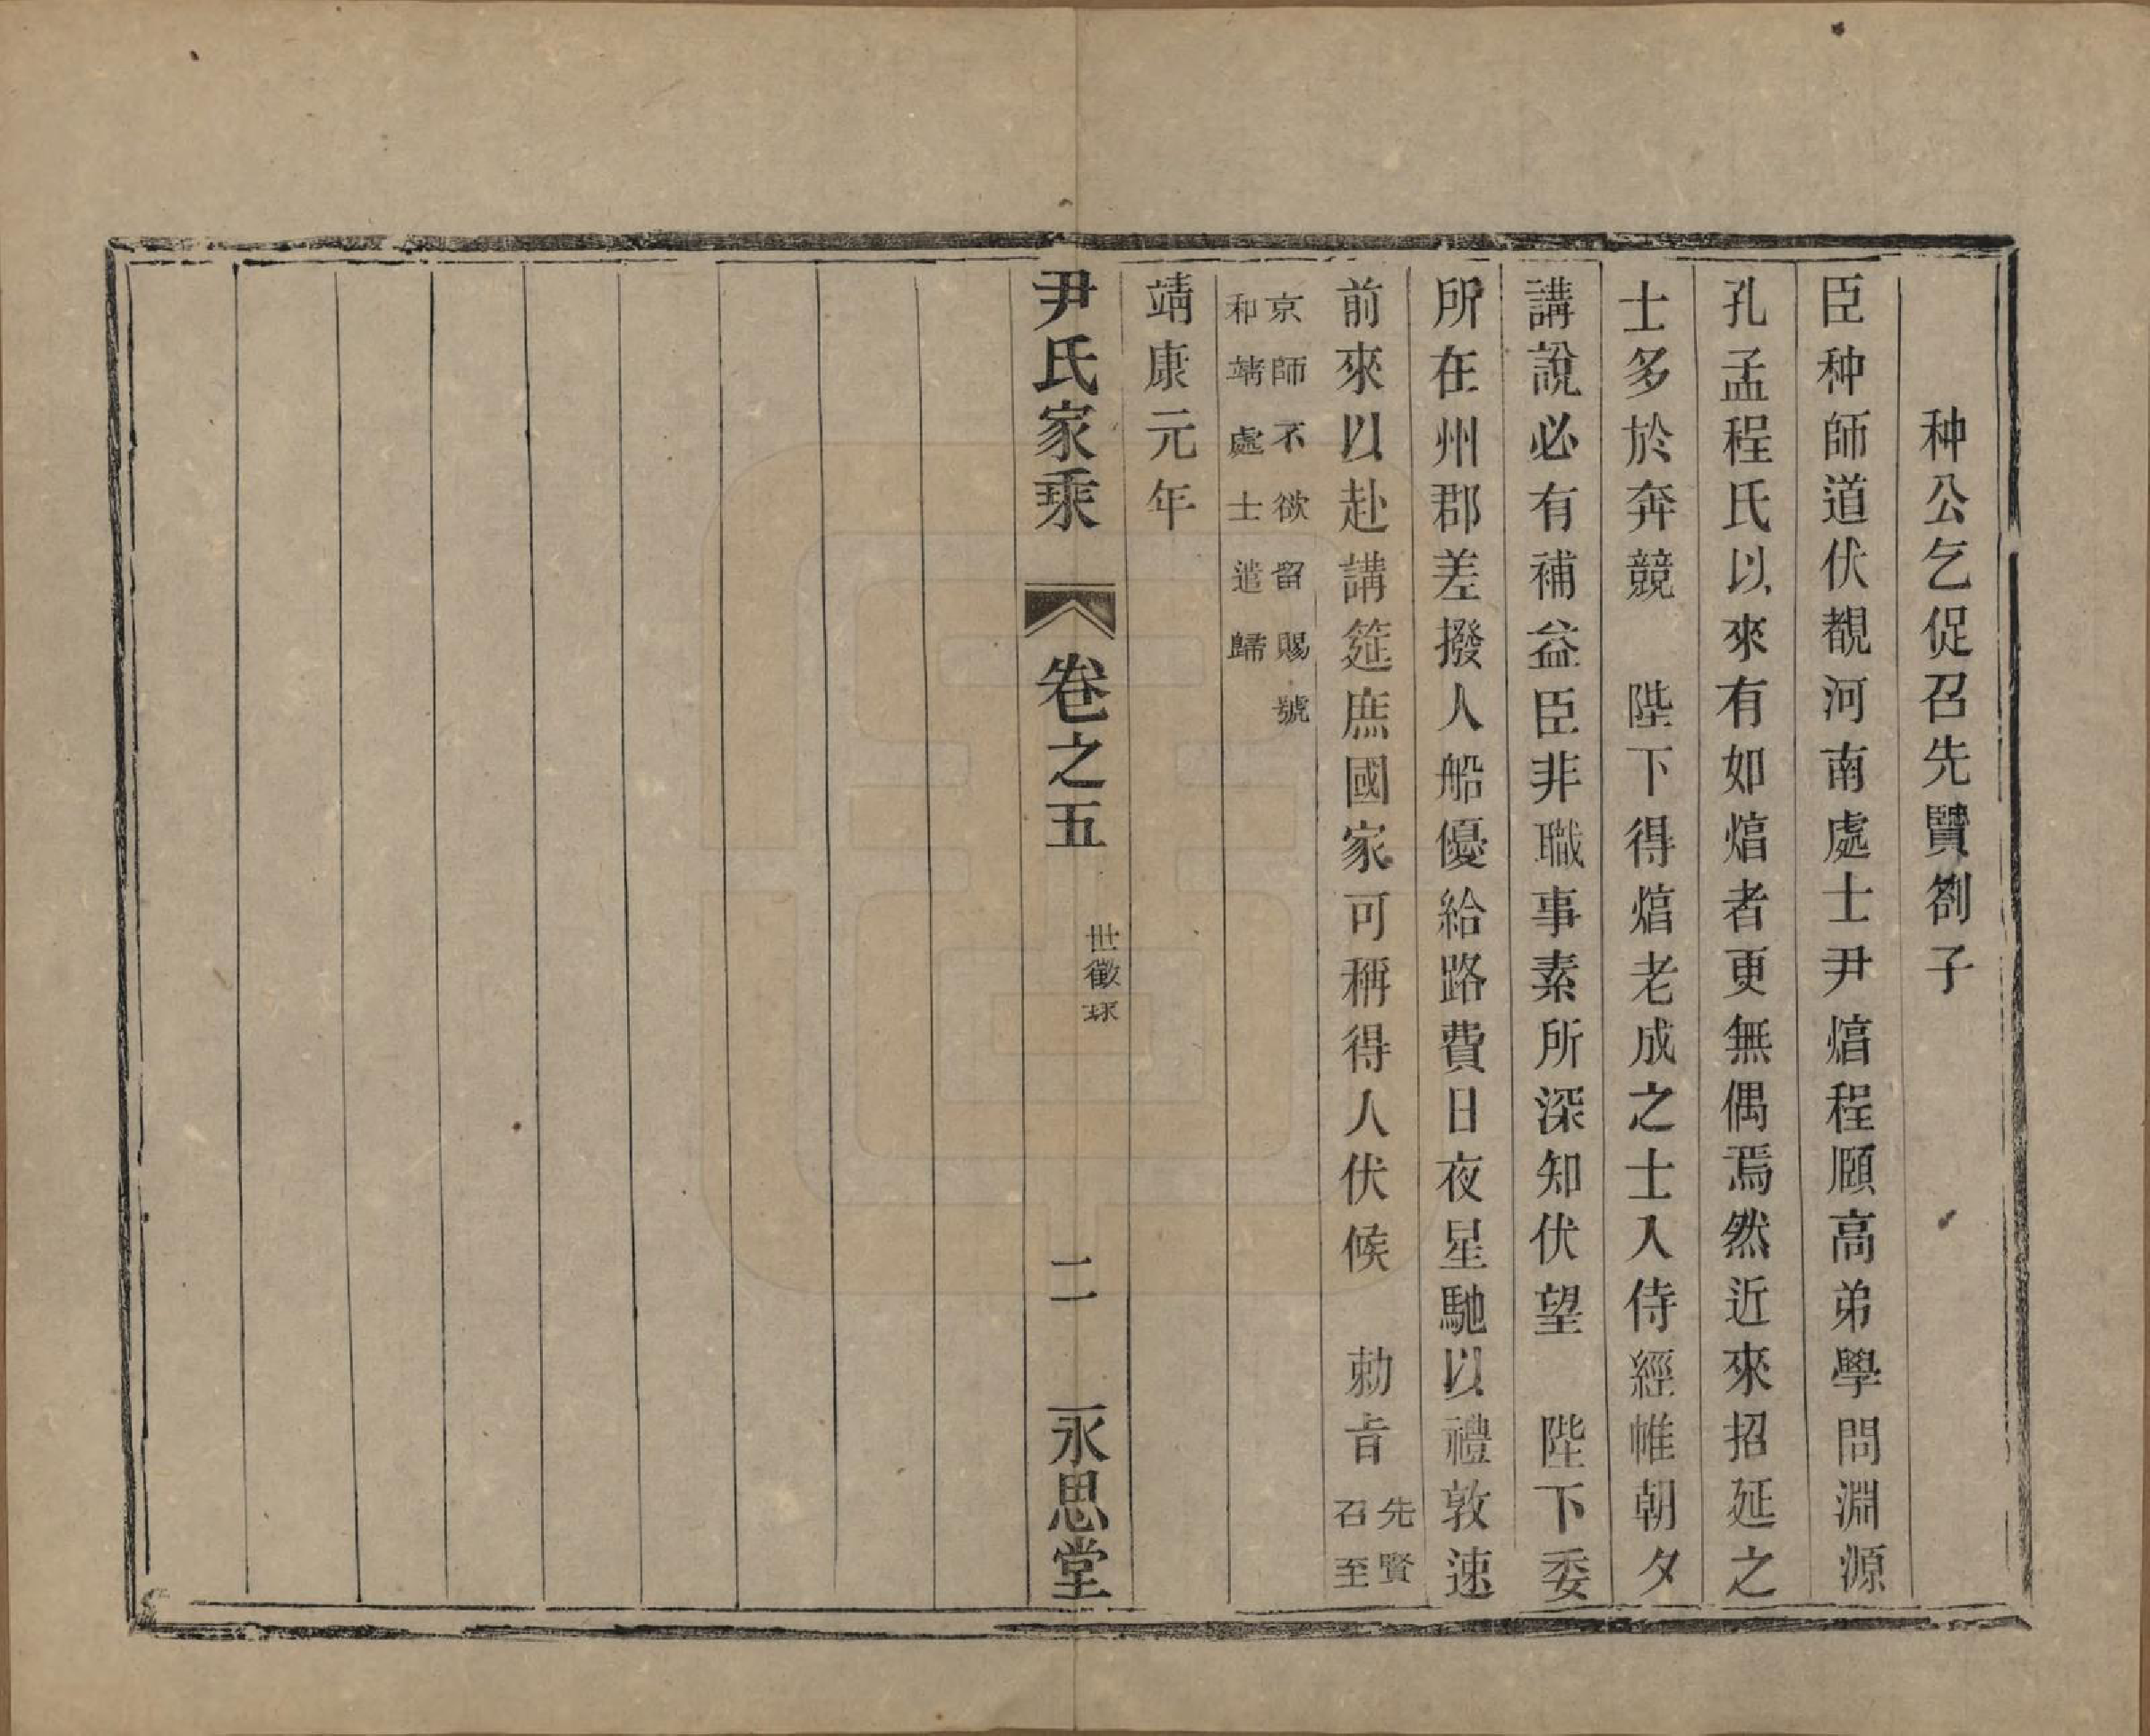 种公乞促召先賢劄子
臣种師道伏覩河南處士尹焞程頤高弟學問淵源
孔孟程氏以來有如焞者更無偶焉然近來招延之
士多於奔競　陛下得焞老成之士入侍經帷朝夕
講說必有補益臣非職事素所深知伏望　陛下委
所在州郡差撥人船優給路費日夜星馳以禮敦速
前來以赴講筵庶國家可稱得人伏候　勅旨先賢召至
京師不欲留賜號
和靖處士遣歸
靖康元年
尹氏家乘　卷之五　世徵球　二　永思堂